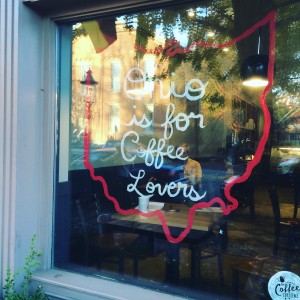 Ohio
is for
Coffee
Lovers
Coffee